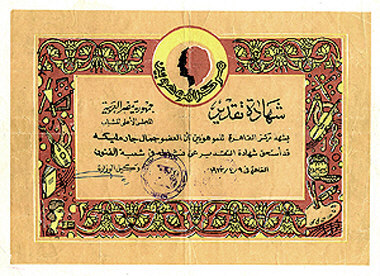 مركز الموهوبين
جمهورية مصر العربية
المجلس الأعلى للشباب
شهادة تقدير
يشهد مركز القاهرة للموهوبين أن العضو جمال جان مليكه
قد استحق شهادة التقدير عن نشاطه في شعبة الفنون
القاهرة في ٩ / ٤ /
وكيل الوزارة